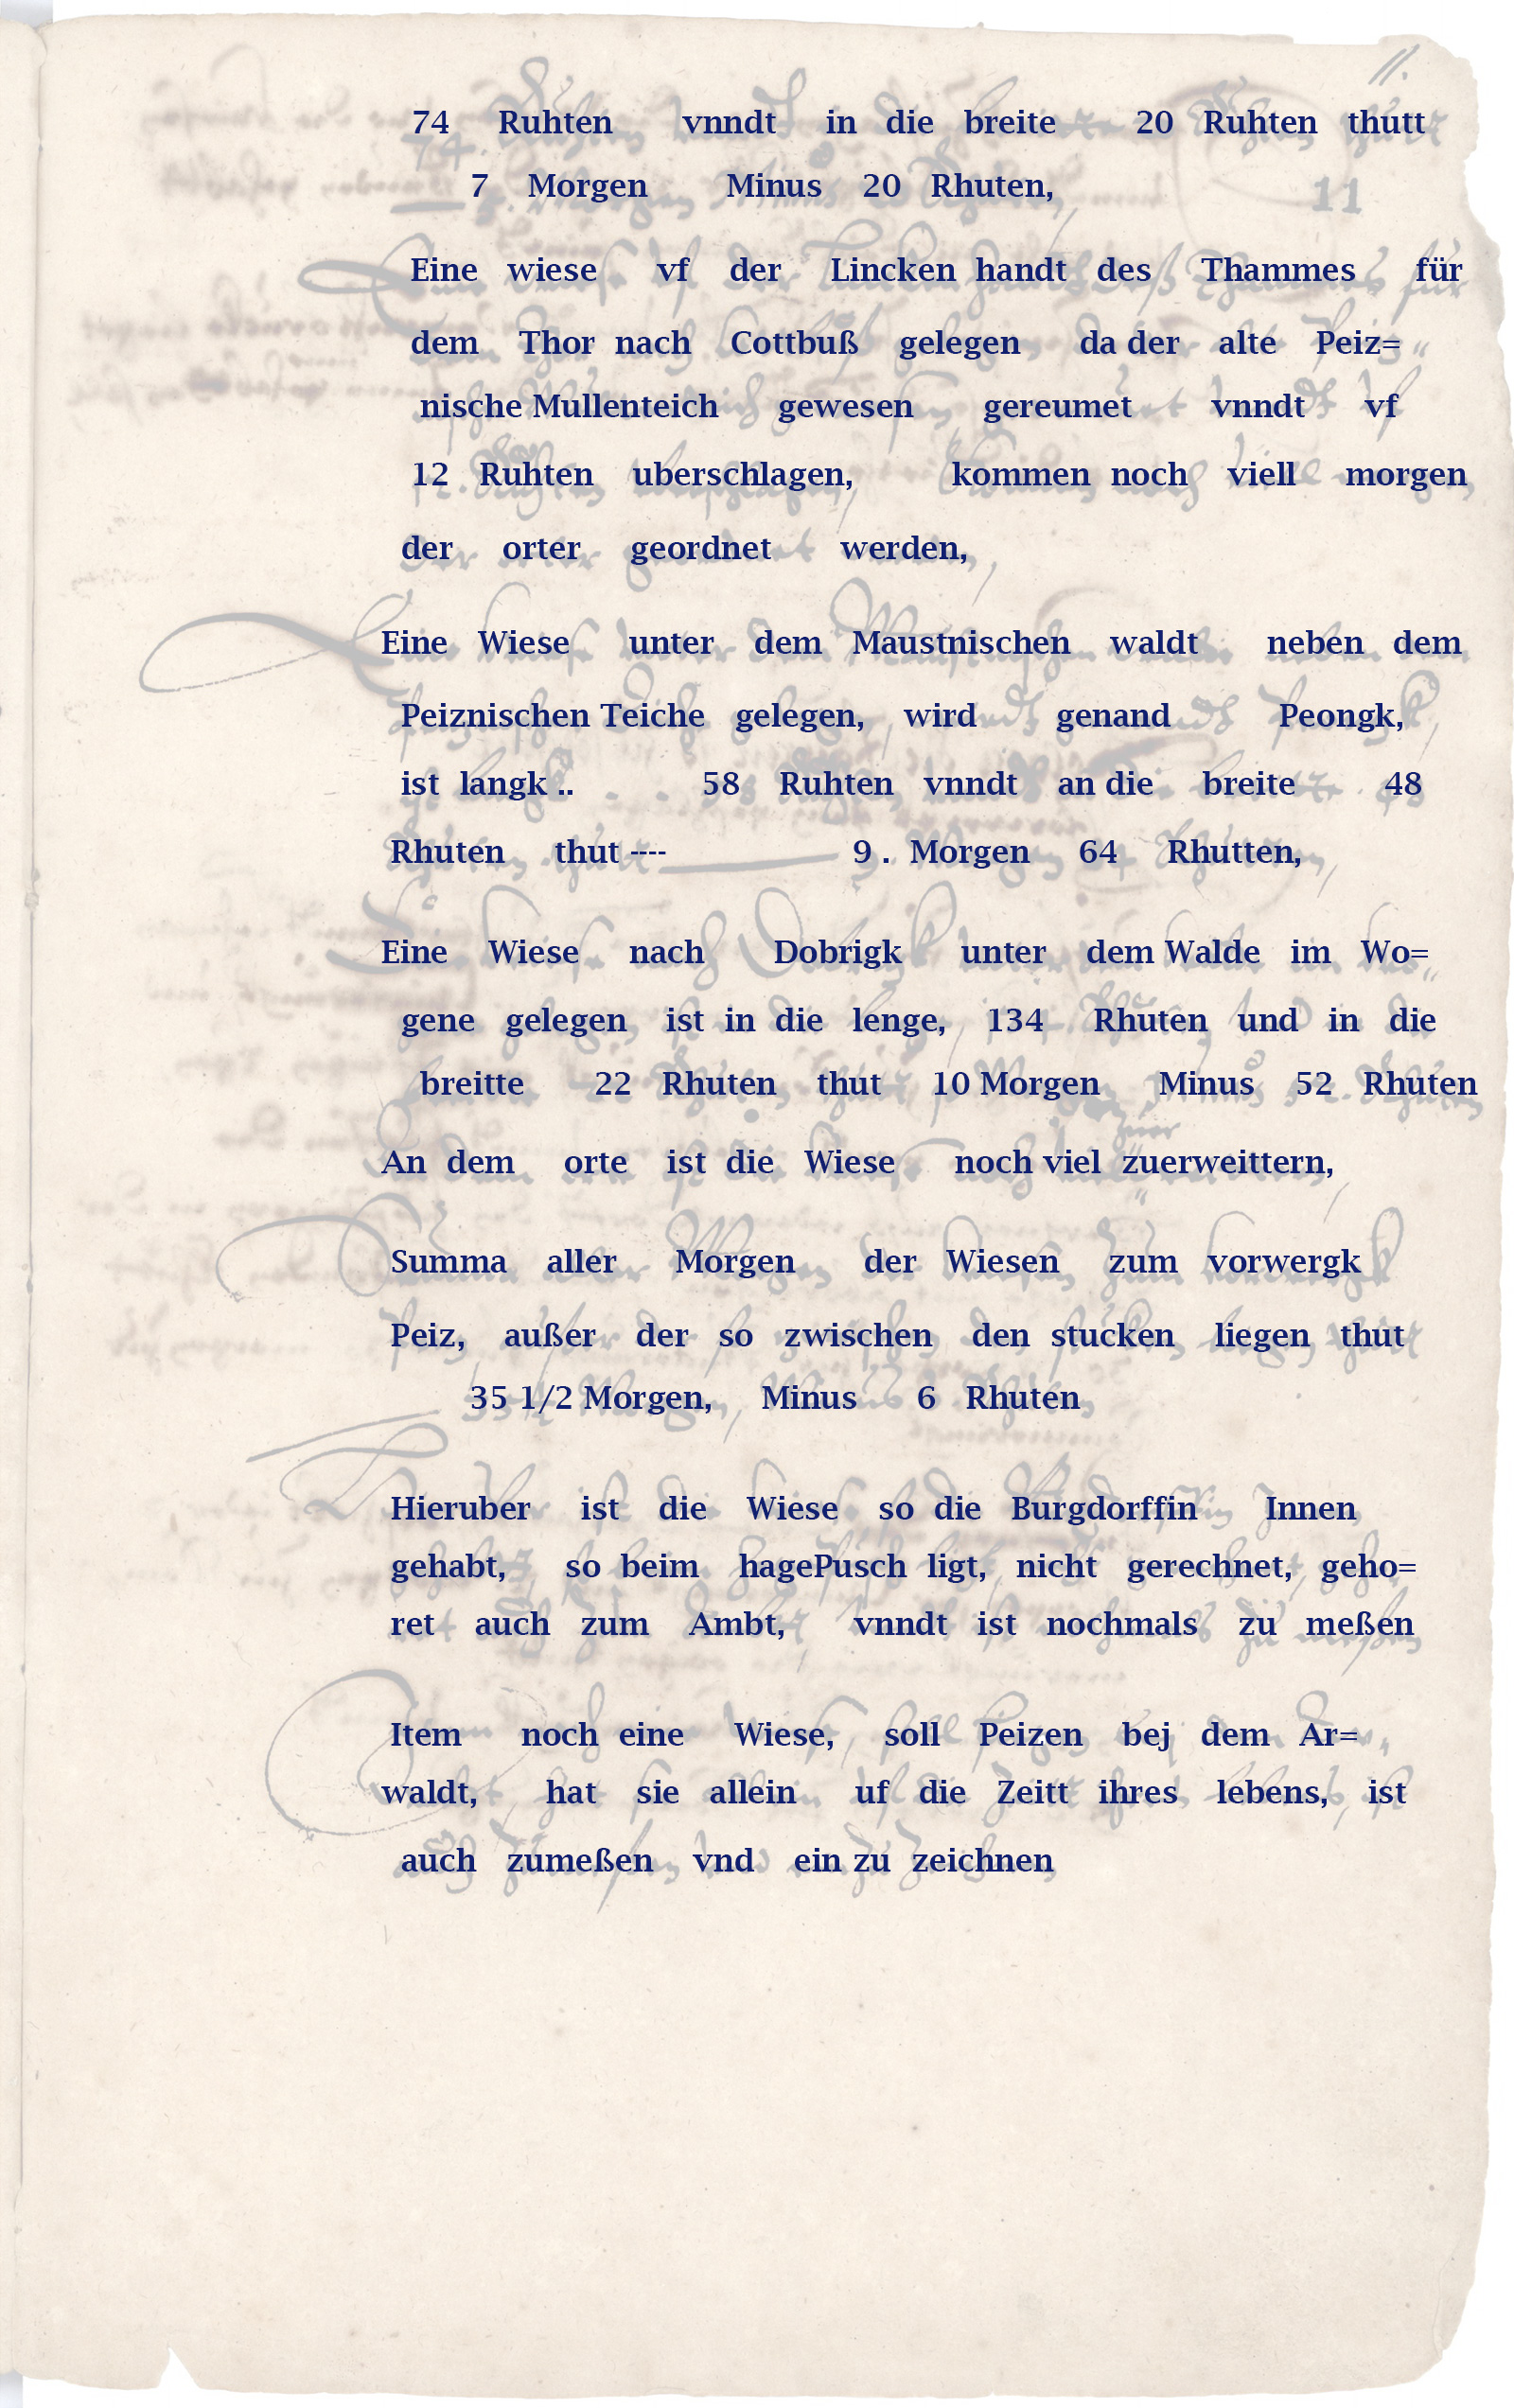 11.
74 Ruhten vnndt in die breite 20 Ruhten thutt
7 Morgen Minus 20 Rhuten,
11
Eine wiese vf der Lincken handt des Thammes für
dem Thor nach Cottbuß gelegen da der alte Peiz=
nische Mullenteich gewesen gereumet vnndt vf
12 Ruhten uberschlagen, kommen noch viell morgen
der orter geordnet werden,
Eine Wiese unter dem Maustnischen waldt neben dem
Peiznischen Teiche gelegen, wird genand Peongk,
ist langk .. 58 Ruhten vnndt an die breite 48
Rhuten thut ---- 9 . Morgen 64 Rhutten,
Eine Wiese nach Dobrigk unter dem Walde im Wo=
gene gelegen ist in die lenge, 134 Rhuten und in die
breitte 22 Rhuten thut 10 Morgen Minus 52 Rhuten
An dem orte ist die Wiese noch viel zuerweittern,
Summa aller Morgen der Wiesen zum vorwergk
Peiz, außer der so zwischen den stucken liegen thut
35 1/2 Morgen, Minus 6 Rhuten
Hieruber ist die Wiese so die Burgdorffin Innen
gehabt, so beim hagePusch ligt, nicht gerechnet, geho=
ret auch zum Ambt, vnndt ist nochmals zu meßen
Item noch eine Wiese, soll Peizen bej dem Ar=
waldt, hat sie allein uf die Zeitt ihres lebens, ist
auch zumeßen vnd ein zu zeichnen